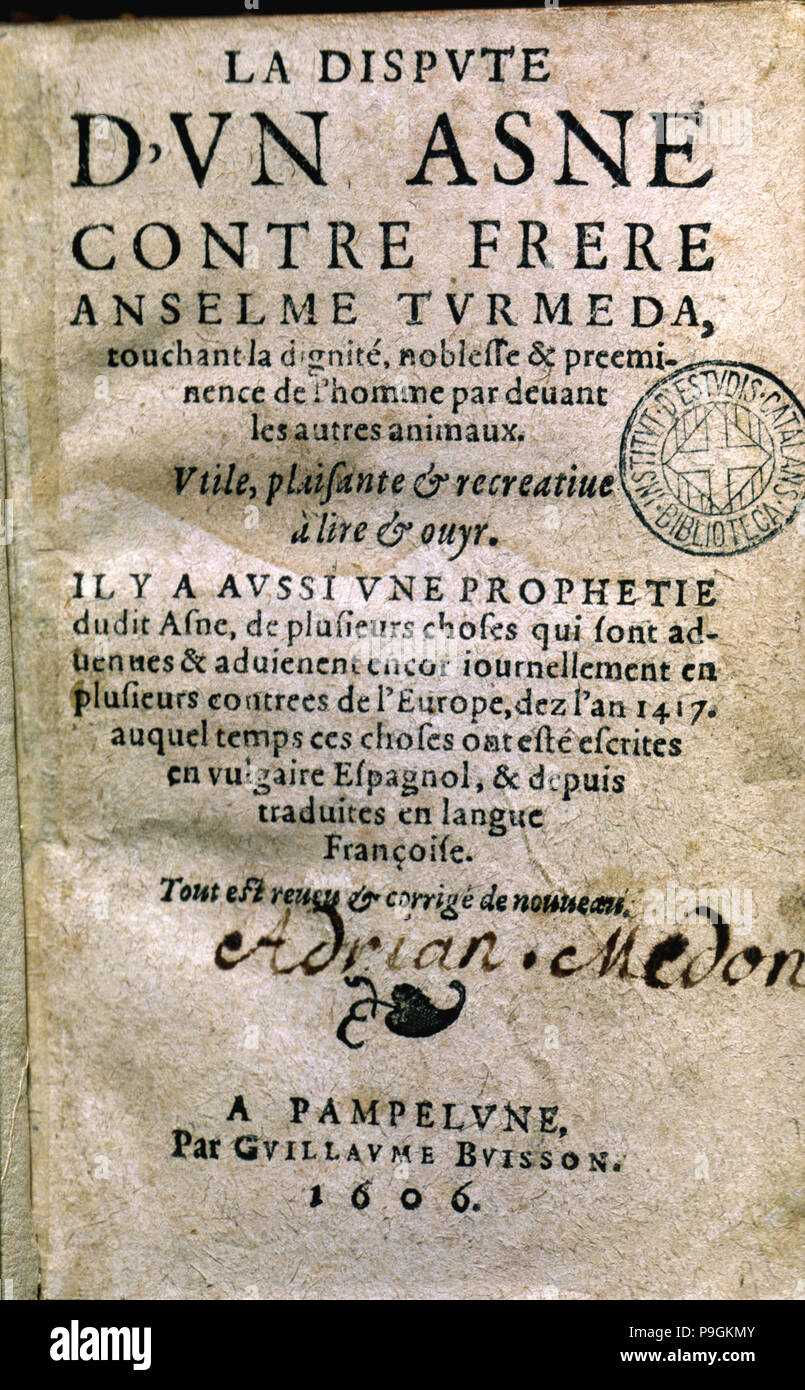 LA DISPVTE
D'VN ASNE
CONTRE FRERE
ANSELME TVRMEDA,
touchant la dignité, nobleſſe & preemi-
nence de l'homme par deuant
les autres animaux.
Vtile, plaiſante & recreatiue
à lire & ouyr.
IL Y A AVSSI VNE PROPHETIE
dudit Aſne, de pluſieurs choſes qui ſont ad-
uenues & aduienent encor iournellement en
pluſieurs contrees de l'Europe, dez l'an 1417.
auquel temps ces choſes ont eſté eſcrites
en vulgaire Eſpagnol, & depuis
traduites en langue
Françoiſe.
Tout eſt reueu & corrigé de nouueau.
Adrian. Medon
A PAMPELVNE,
Par GVILLAVME BVISSON.
1606.
INSTITVT·D'ESTVDIS·CATALANS·
BIBLIOTECA
alamy
a
alamy stock photo
P9GKMY
www.alamy.com